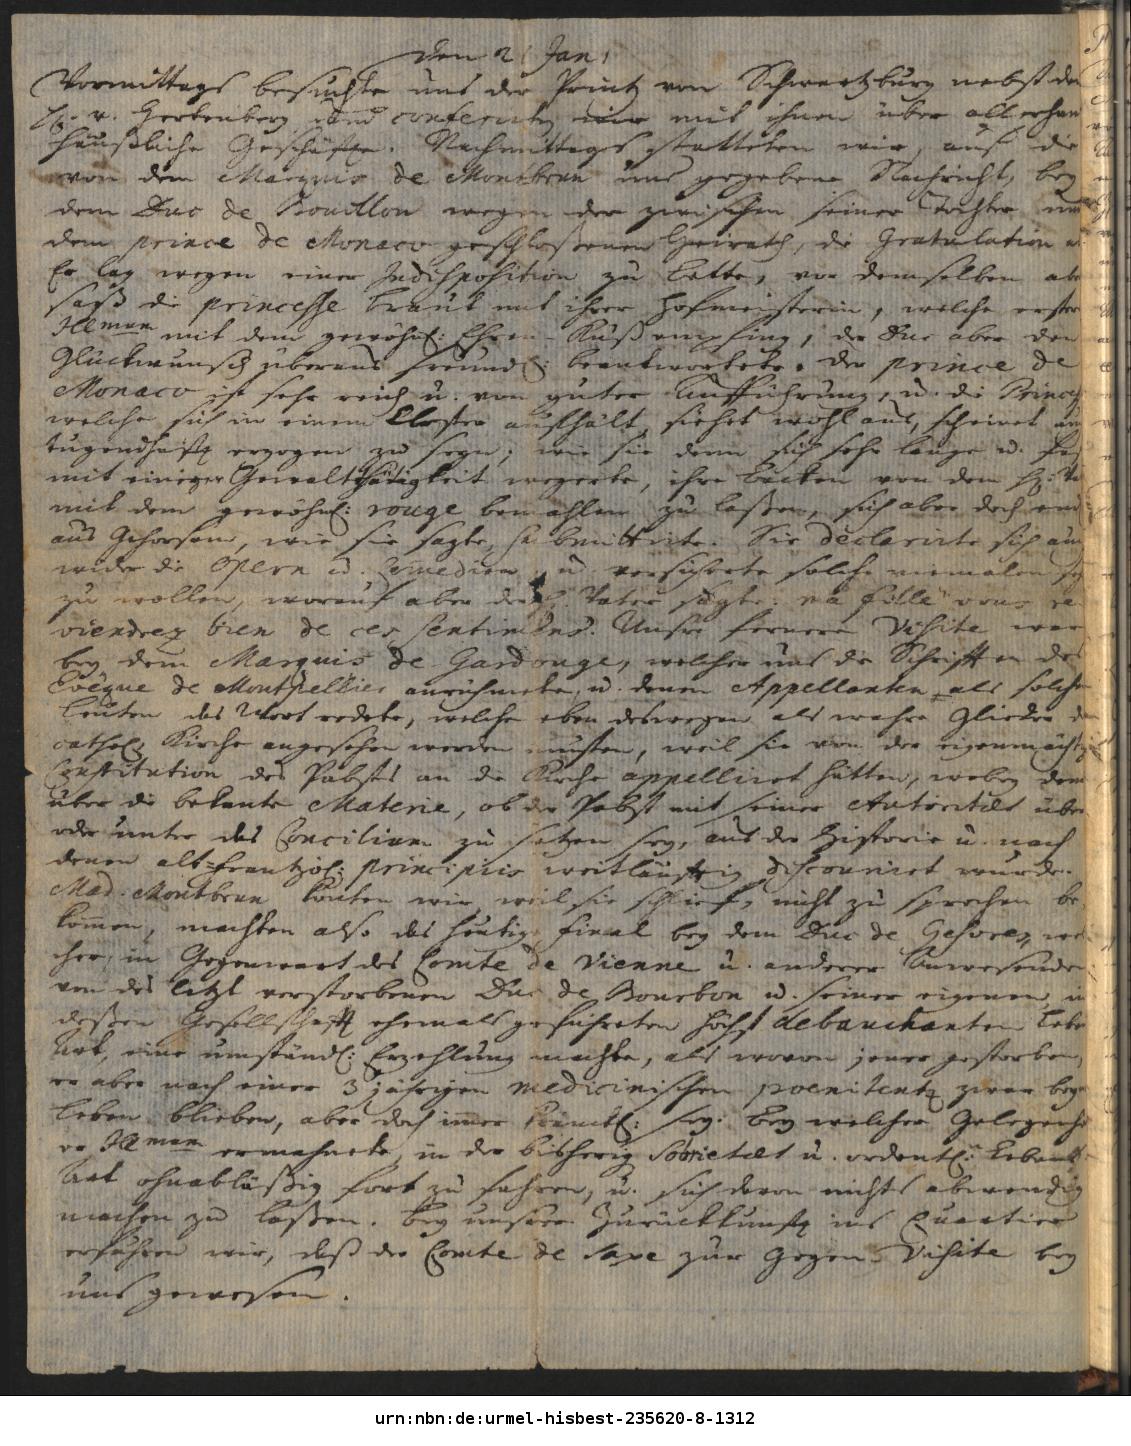 den 21 Jan:
Vormittags besuchte uns der Printz von Schwartzburg nebst dem
H. v. Gerbenberg und conferirten mit ihnen über allerhand
häußliche Geschäffte. Nachmittages statteten wir, auf die
von dem Marquis de Montbrun uns gegebene Nachricht, bey
dem Duc de Bouillon wegen der zwischen seiner Tochter und
dem prince de Monaco geschloßenen Heirath, die Gratulation
Er lag wegen einer Indisposition zu bette, vor demselben aber
saß die princesse braut mit ihrer Hofmeisterin, welche erstere
Illmum mit dem gewöhnl: Ehren-Kuß empfing, der Duc aber den
Glückwunsch überaus freundl: beantwortete. Der prince de
Monaco ist sehr reich u. von guter Aufführung, u. die Princeß
welche sich in einem Closter aufhält, siehet wohl aus, scheinet
tugendhafft erzogen zu seyn; wie sie denn sich sehr lange u. fast
mit einiger Gewaltthätigkeit wegerte, ihre backen von dem H.
mit dem gewöhnl: rouge bemahlen zu laßen, sich aber doch endl:
aus Gehorsam, wie sie sagte, submittirte. Sie declarirte sich auch
wider die Opern u. Comedien, u. versicherte solche niemalen
zu wollen, worauf aber der H. Vater sagte: ma fille vous re-
viendrez bien de ces sentimens. Unsre fernere Visite war
bey dem Marquis de Gardouge, welcher uns die Schrifften des
Evêque de Montpellier anrühmete, u. denen Appellanten als solchen
Leuten das Wort redete, welche eben deswegen als wahre Glieder der
cathol. Kirche angesehen werden müsten, weil sie von der eigenmächtigen
Constitution des Pabsts an die Kirche appelliret hätten, wobey denn
über die bekante Materie, ob der Pabst mit seiner Autoritæt über
oder unter das Concilium zu setzen sey, aus der Historie u. nach
denen alt-frantzös: principiis weitläufftig discouriret wurde.
Mad. Montbrun konten wir, weil sie schlief, nicht zu sprechen be-
kommen, machten also das heutige final bey dem Duc de Gesvres, wel-
cher, in Gegenwart des Comte de Vienne u. anderer Anwesenden
von des letzt verstorbenen Duc de Bourbon u. seiner eigenen, in
deßen Gesellschafft ehemals geführten höchst debauchanten Lebens
Art, eine umständl: Erzehlung machte, als wovon jener gestorben,
er aber nach einer 3 jährigen medicinischen poenitentz zwar beym
Leben blieben, aber doch immer kränkl: sey. Bey welcher Gelegenheit
er Illmum ermahnete, in der bisherig Sobrietæt u. ordentl: Lebens
Art ohnabläßig fort zu fahren, u. sich davon nichts abwendig
machen zu laßen. Bey unsrer Zurückkunfft ins Quartier
erfuhren wir, daß der Comte de Saxe zur Gegen-Visite bey
uns gewesen.
urn:nbn:de:urmel-hisbest-235620-8-1312